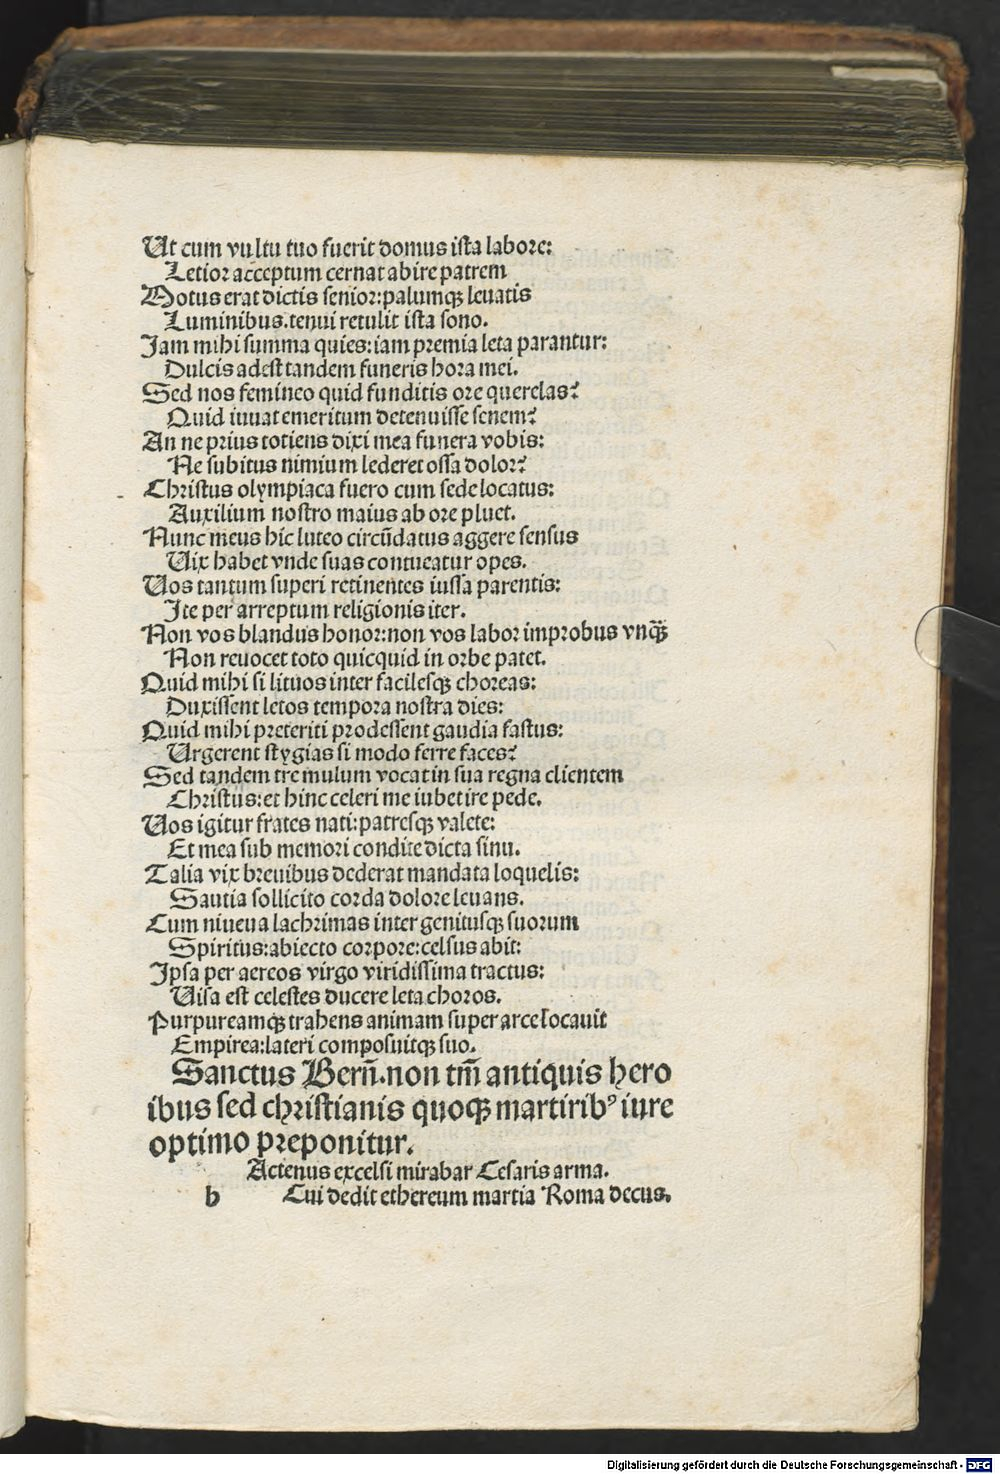 Ut cum vultu tuo fuerit domus ista labore:
Letior acceptum cernat abire patrem
Motus erat dictis senior: palumqʒ leuatis
Luminibus. tenui retulit ista sono.
Jam mihi summa quies: iam premia leta parantur:
Dulcis adest tandem funeris hora mei.
Sed nos femineo quid funditis ore querelas?
Quid iuuat emeritum detenuisse senem?
An ne prius totiens dixi mea funera vobis:
Ne subitus nimium lederet ossa dolor?
Christus olympiaca fuero cum sede locatus:
Auxilium nostro maius ab ore pluet.
Nunc meus hic luteo circūdatus aggere sensus
Uix habet vnde suas contueatur opes.
Uos tantum superi retinentes iussa parentis:
Ite per arreptum religionis iter.
Non vos blandus honor: non vos labor improbus vnqʒ̄
Non reuocet toto quicquid in orbe patet.
Quid mihi si lituos inter facilesqʒ choreas:
Duxissent letos tempora nostra dies:
Quid mihi preteriti prodessent gaudia fastus:
Urgerent stygias si modo ferre faces?
Sed tandem tremulum vocat in sua regna clientem
Christus: et hinc celeri me iubet ire pede.
Uos igitur frates nati: patresqʒ valete:
Et mea sub memori condite dicta sinu.
Talia vix breuibus dederat mandata loquelis:
Sautia sollicito corda dolore leuans.
Cum niueua lachrimas inter genitusqʒ suorum
Spiritus: abiecto corpore: celsus abit:
Ipsa per aereos virgo viridissima tractus:
Uisa est celestes ducere leta choros.
Purpureamqʒ trahens animam super arce locauit
Empirea: lateri composuitqʒ suo.
Sanctus Berñ. non tm̄ antiquis hero
ibus sed christianis quoqʒ martiribꝰ iure
optimo preponitur.
Actenus excelsi mirabar Cesaris arma.
b Cui dedit ethereum martia Roma decus.
Digitalisierung gefördert durch die Deutsche Forschungsgemeinschaft - DFG